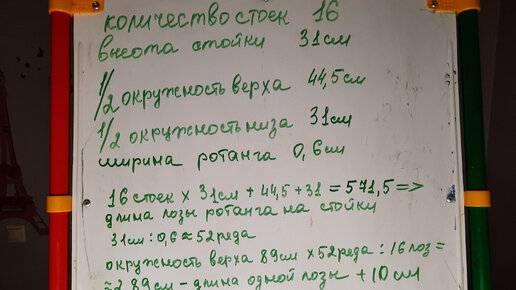 количество стоек 16
высота стойки 31см
1/2 окружность верха 44,5см
1/2 окружность низа 31см
ширина ротанга 0,6см
16 стоек х 31см + 44,5 + 31 = 571,5 =>
длина лозы ротанга на стойки
31см : 0,6 ≈ 52 ряда
окружность верха 89см х 52 ряда : 16 лоз =
≈ 289см - длина одной лозы + 10см